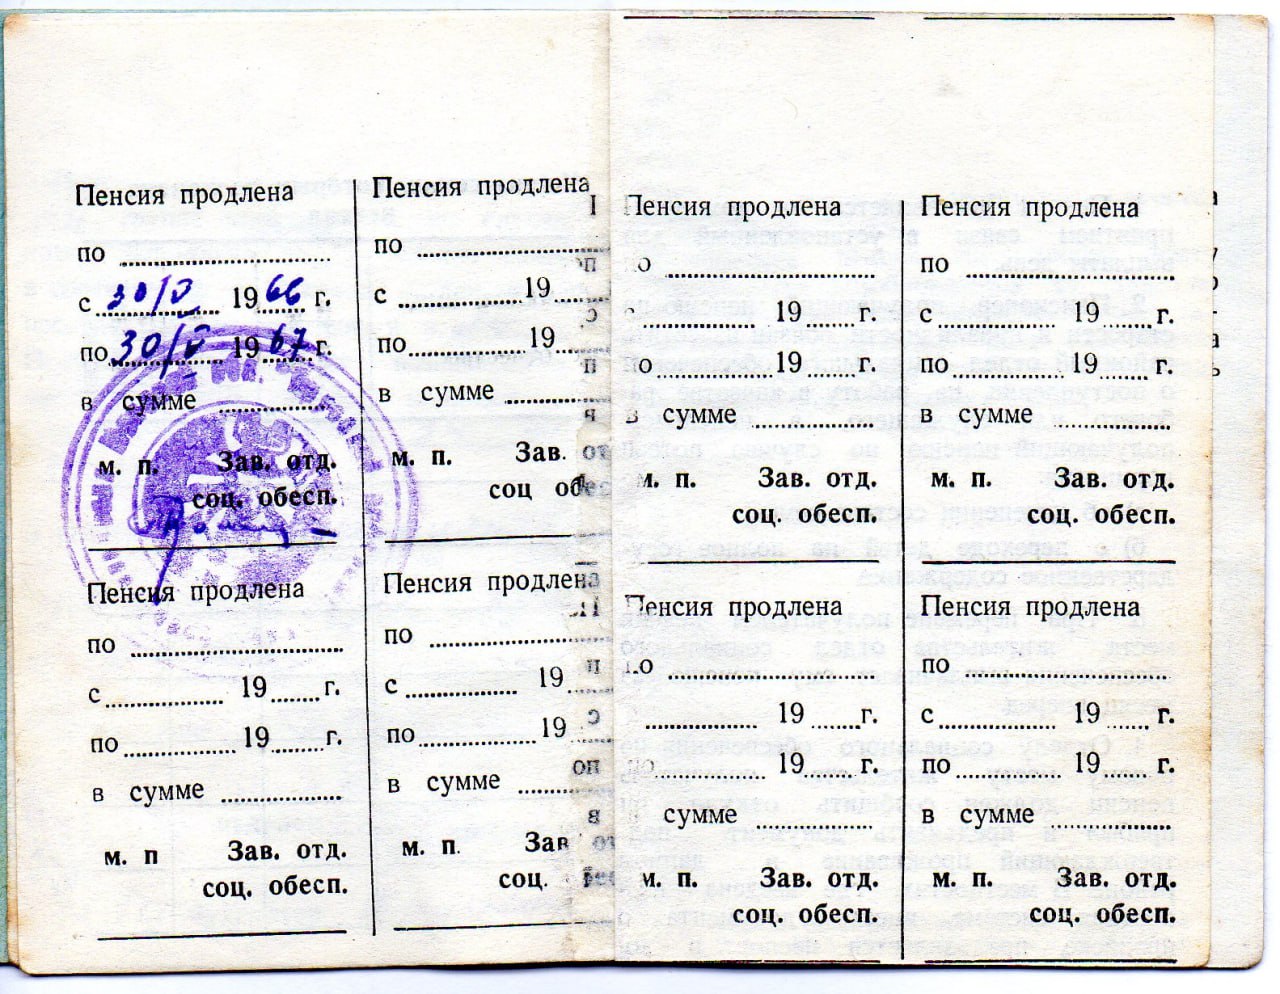 Пенсия продлена
по
с 30/V 1966 г.
по 30/V 1967 г.
в сумме
м. п. Зав. отд.
соц. обесп.
Пенсия продлена
по
с 19 г.
по 19 г.
в сумме
м. п Зав. отд.
соц. обесп.
Пенсия продлена
по
с 19
по 19
в сумме
м. п. Зав. от
соц обес
Пенсия продлена
по
с 19
по 19
в сумме
м. п. Зав от
соц. бес
Пенсия продлена
по
с 19 г.
по 19 г.
в сумме
м. п. Зав. отд.
соц. обесп.
Пенсия продлена
по
19 г.
по 19 г.
сумме
м. п. Зав. отд.
соц. обесп.
Пенсия продлена
по
с 19 г.
по 19 г.
в сумме
м. п. Зав. отд.
соц. обесп.
Пенсия продлена
по
с 19 г.
по 19 г.
в сумме
м. п. Зав. отд.
соц. обесп.